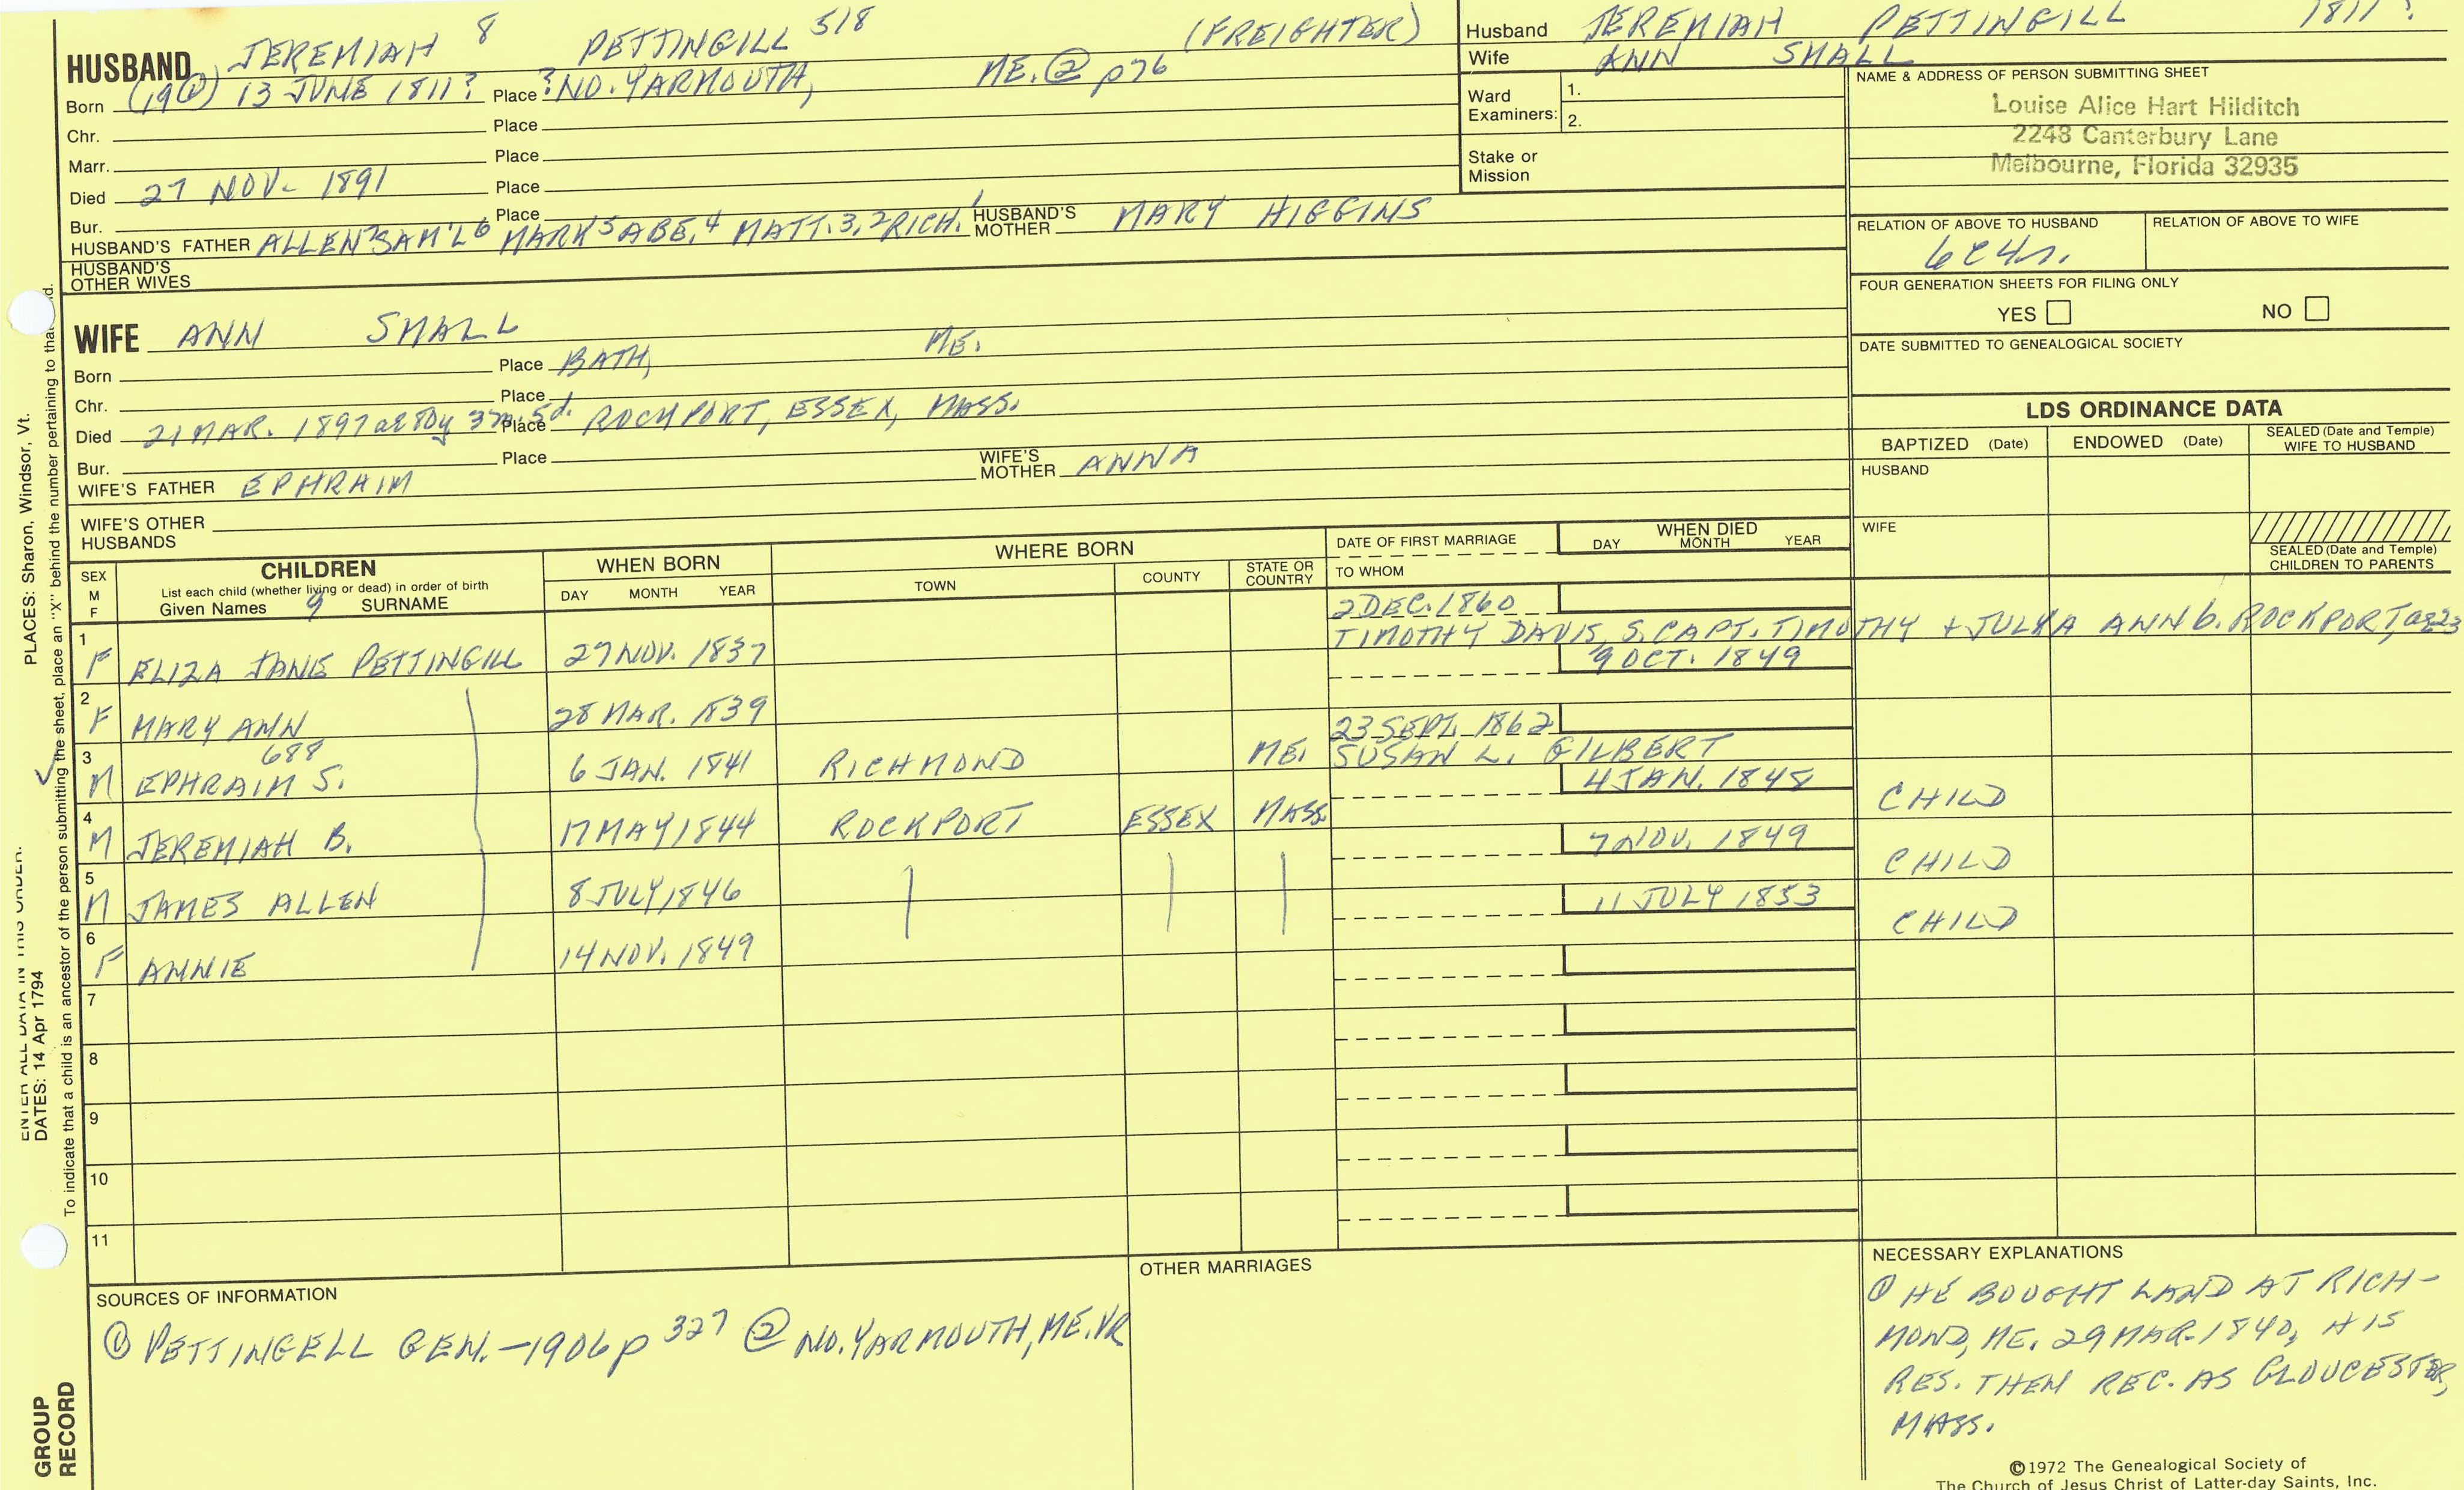 HUSBAND JEREMIAH 8 PETTINGILL 518 (FREIGHTER)
Born (19①) 13 JUNE 1811? Place ? NO. YARMOUTH, ME. @ p76
Chr. Place
Marr. Place
Died 27 NOV. 1891 Place
Bur. Place
HUSBAND'S FATHER ALLEN 7 SAM'L 6 MARK 5 ABE, 4 MATT. 3, 2 RICH. 1 HUSBAND'S MOTHER MARY HIGGINS
HUSBAND'S OTHER WIVES
WIFE ANN SMALL
Born Place BATH, ME.
Chr. Place
Died 21 MAR. 1897 ae 80y 3m. 5d. Place ROCKPORT, ESSEX, MASS.
Bur. Place
WIFE'S FATHER EPHRAIM WIFE'S MOTHER ANNA
WIFE'S OTHER HUSBANDS
Husband JEREMIAH PETTINGILL 1811?
Wife ANN SMALL
Ward Examiners: 1.
2.
Stake or Mission
NAME & ADDRESS OF PERSON SUBMITTING SHEET
Louise Alice Hart Hilditch
2248 Canterbury Lane
Melbourne, Florida 32935
RELATION OF ABOVE TO HUSBAND RELATION OF ABOVE TO WIFE
6C4r.
FOUR GENERATION SHEETS FOR FILING ONLY
YES NO
DATE SUBMITTED TO GENEALOGICAL SOCIETY
LDS ORDINANCE DATA
BAPTIZED (Date) ENDOWED (Date) SEALED (Date and Temple) WIFE TO HUSBAND
HUSBAND
WIFE
SEALED (Date and Temple) CHILDREN TO PARENTS
SEX M F
CHILDREN
List each child (whether living or dead) in order of birth
Given Names 9 SURNAME
WHEN BORN
DAY MONTH YEAR
WHERE BORN
TOWN COUNTY STATE OR COUNTRY
DATE OF FIRST MARRIAGE
TO WHOM
WHEN DIED
DAY MONTH YEAR
2 DEC. 1860
1 F ELIZA JANE PETTINGILL 27 NOV. 1837 TIMOTHY DAVIS, S. CAPT. TIMOTHY + JULIA ANN b. ROCKPORT, ae 23
9 OCT. 1849
2 F MARY ANN 28 MAR. 1839
688 23 SEPT. 1862
3 M EPHRAIM S. 6 JAN. 1841 RICHMOND ME. SUSAN L. GILBERT
4 JAN. 1848
4 M JEREMIAH B. 17 MAY 1844 ROCKPORT ESSEX MASS. CHILD
7 NOV. 1849
5 M JAMES ALLEN 8 JULY 1846 CHILD
11 JULY 1853
6 F ANNIE 14 NOV. 1849 CHILD
7
8
9
10
11
SOURCES OF INFORMATION
① PETTINGELL GEN. - 1906 p 327 ② NO. YARMOUTH, ME. VR
OTHER MARRIAGES
NECESSARY EXPLANATIONS
① HE BOUGHT LAND AT RICH-
MOND, ME. 29 MAR. 1840, HIS
RES. THEN REC. AS GLOUCESTER,
MASS.
©1972 The Genealogical Society of
The Church of Jesus Christ of Latter-day Saints, Inc.
PLACES: Sharon, Windsor, Vt.
ENTER ALL DATA IN THIS ORDER:
DATES: 14 Apr 1794
To indicate that a child is an ancestor of the person submitting the sheet, place an "X" behind the number pertaining to that
GROUP
RECORD